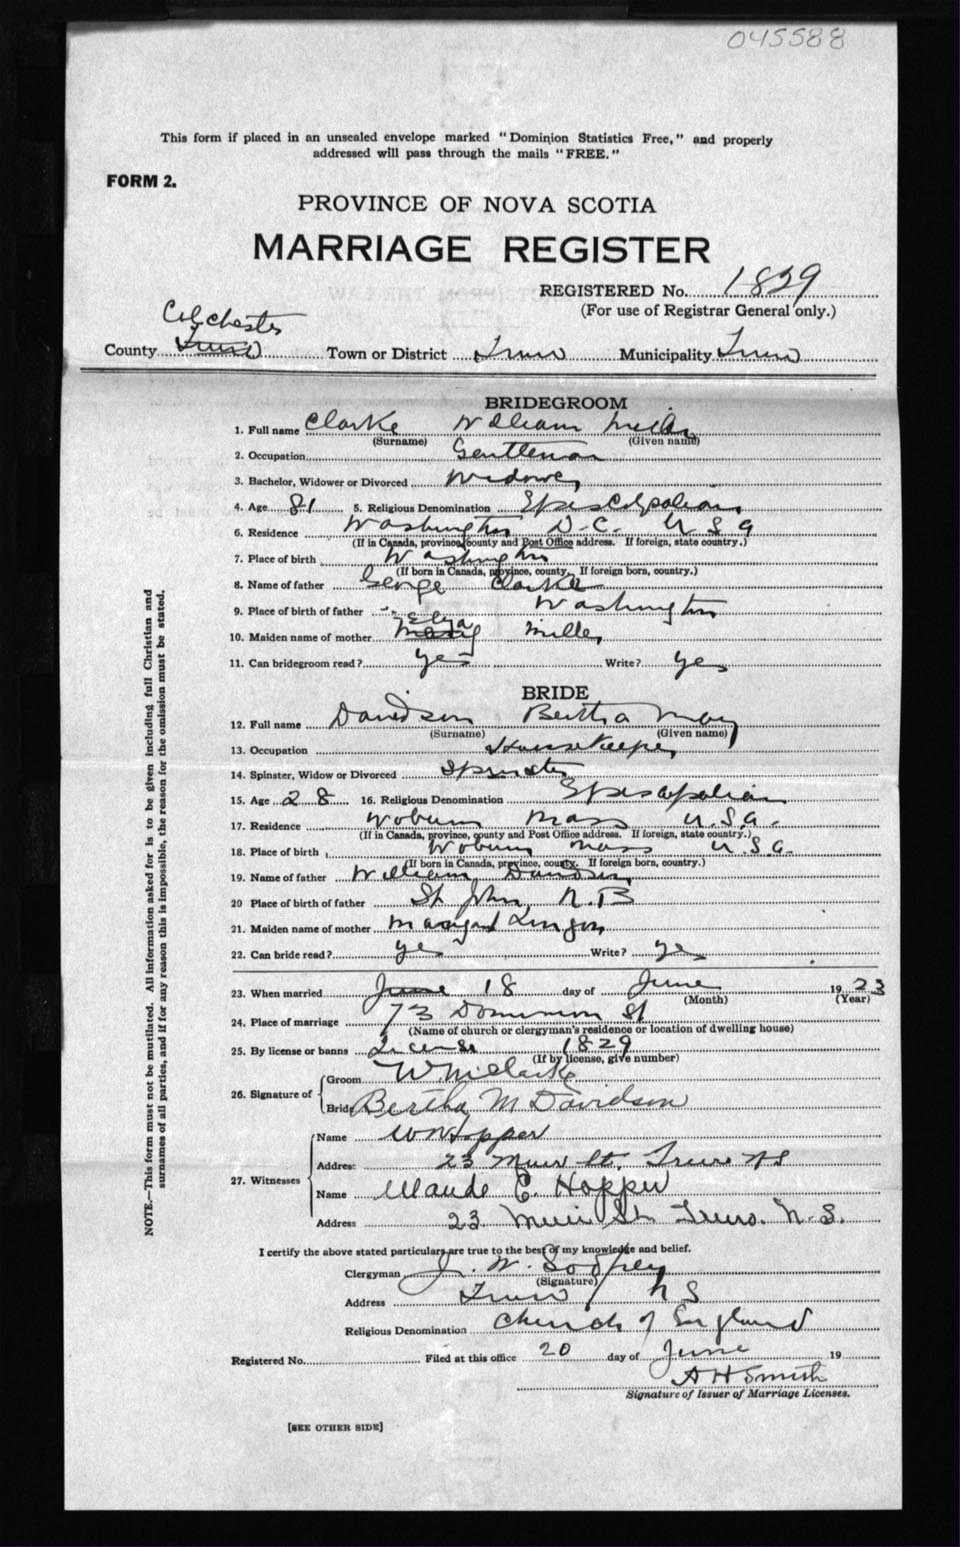 045588
This form if placed in an unsealed envelope marked "Dominion Statistics Free," and properly
addressed will pass through the mails "FREE."
FORM 2.
PROVINCE OF NOVA SCOTIA
MARRIAGE REGISTER
REGISTERED No. 1829
(For use of Registrar General only.)
Colchester
County Truro Town or District Truro Municipality Truro
BRIDEGROOM
1. Full name Clarke William Miller
(Surname) (Given name)
2. Occupation Gentleman
3. Bachelor, Widower or Divorced Widower
4. Age 81 5. Religious Denomination Episcopalian
6. Residence Washington D.C. U S A
(If in Canada, province, county and Post Office address. If foreign, state country.)
7. Place of birth Washington
(If born in Canada, province, county. If foreign born, country.)
8. Name of father George Clarke
9. Place of birth of father Washington
10. Maiden name of mother Miller
11. Can bridegroom read? yes Write? yes
BRIDE
12. Full name Davidson Bertha May
(Surname) (Given name)
13. Occupation Housekeeper
14. Spinster, Widow or Divorced Spinster
15. Age 28 16. Religious Denomination Episcopalian
17. Residence Woburn Mass U.S.A.
(If in Canada, province, county and Post Office address. If foreign, state country.)
18. Place of birth Woburn Mass U.S.A.
(If born in Canada, province, county. If foreign born, country.)
19. Name of father William Davidson
20 Place of birth of father St John N.B
21. Maiden name of mother Margaret
22. Can bride read? yes Write? yes
23. When married June 18 day of June 1923
(Month) (Year)
24. Place of marriage 73 Dominion St
(Name of church or clergyman's residence or location of dwelling house)
25. By license or banns License 1829
(If by license, give number)
26. Signature of Groom W M Clarke
Bride Bertha M Davidson
27. Witnesses
Name W Hopper
Address 23 Muir St. Truro N S
Name Maude E. Hopper
Address 23 Muir St. Truro. N.S.
I certify the above stated particulars are true to the best of my knowledge and belief.
Clergyman J. W. Godfrey
(Signature)
Address Truro N S
Religious Denomination Church of England
Registered No. Filed at this office 20 day of June 19
A H Smith
Signature of Issuer of Marriage Licenses.
[SEE OTHER SIDE]
NOTE.—This form must not be mutilated. All information asked for is to be given including full Christian and
surnames of all parties, and if for any reason this is impossible, the reason for the omission must be stated.